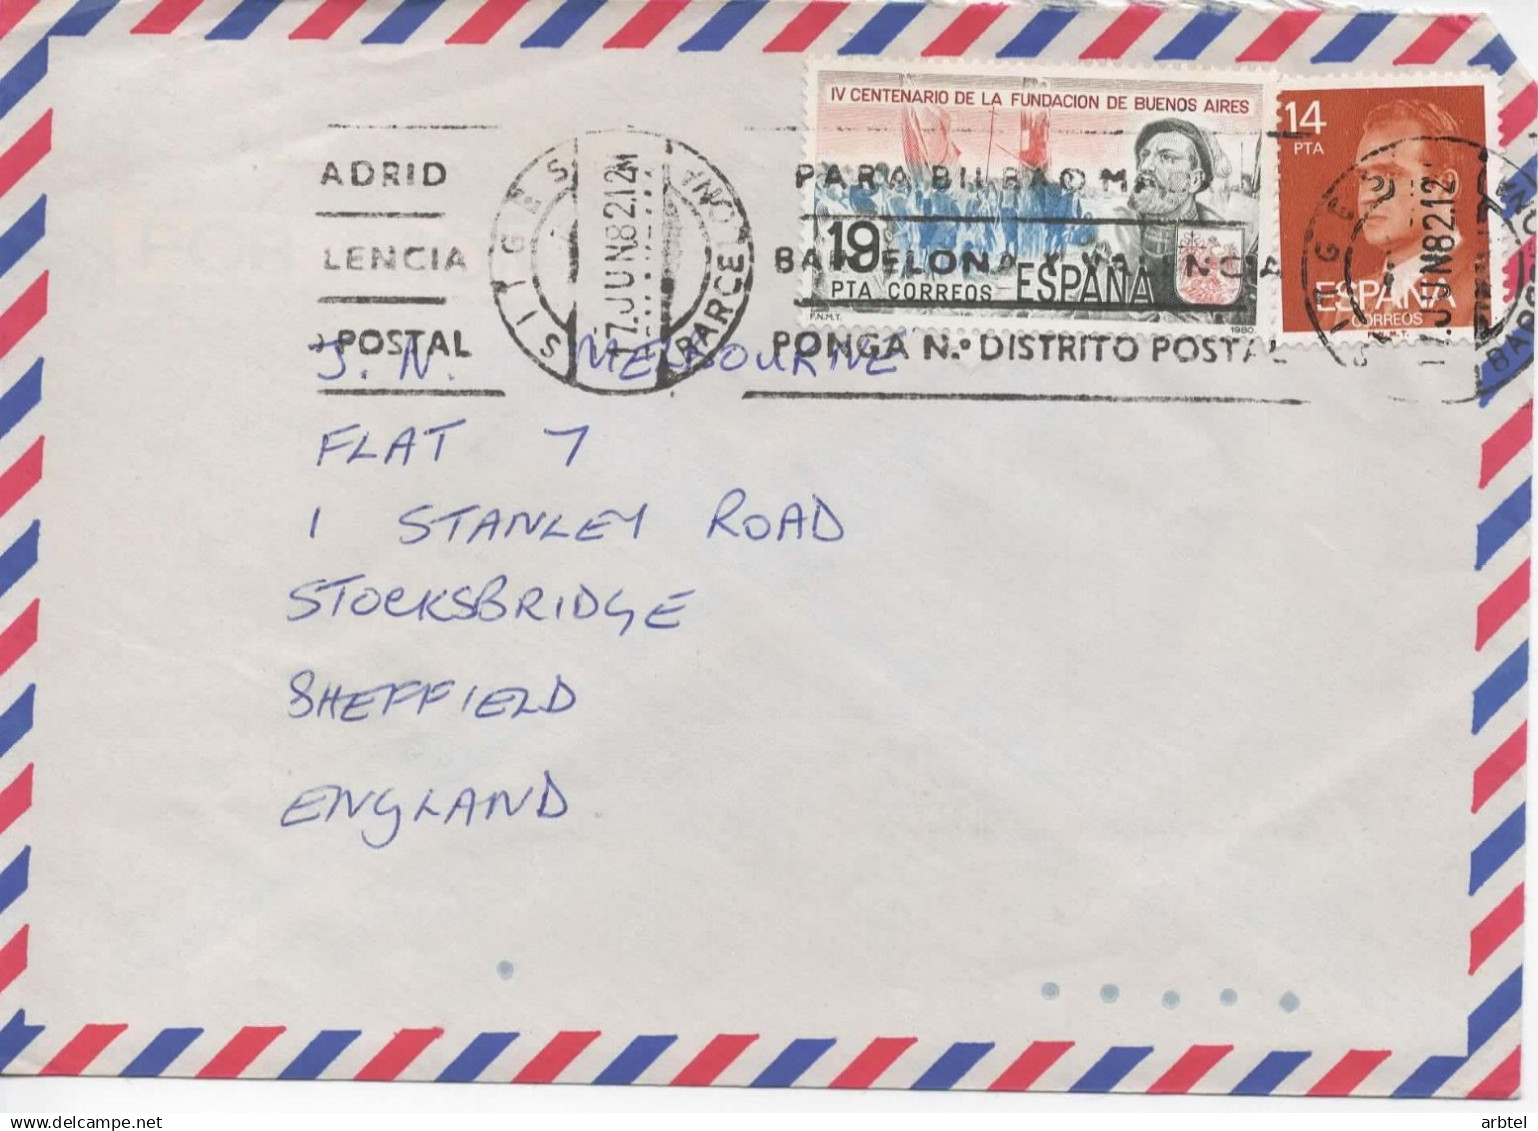 IV CENTENARIO DE LA FUNDACION DE BUENOS AIRES
19
PTA CORREOS ESPAÑA
F.N.M.T. 1980
14
PTA
ESPAÑA
CORREOS
F.N.M.T.
ADRID
LENCIA
POSTAL
SITGES
17.JUN82.12M
BARCELONA
PARA BILBAO MA
BARCELONA Y VALENCIA
PONGA N.º DISTRITO POSTAL
SITGES
JUN82.12
BAR
J.N. MELBOURNE
FLAT 7
1 STANLEY ROAD
STOCKSBRIDGE
SHEFFIELD
ENGLAND
arbtel